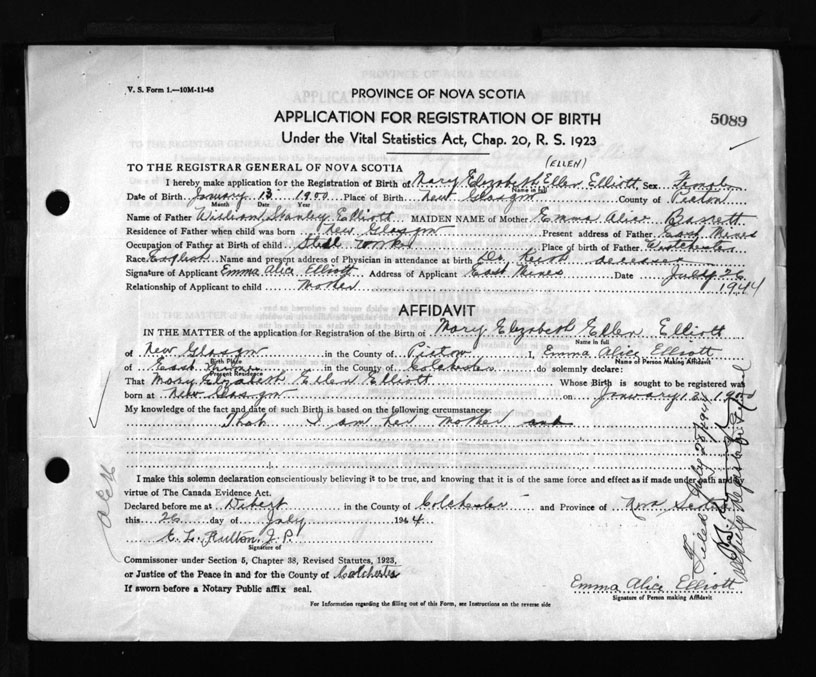 V. S. Form 1.—10M-11-43
PROVINCE OF NOVA SCOTIA
APPLICATION FOR REGISTRATION OF BIRTH
5089
Under the Vital Statistics Act, Chap. 20, R. S. 1923
(ELLEN)
TO THE REGISTRAR GENERAL OF NOVA SCOTIA
I hereby make application for the Registration of Birth of Mary Elizabeth Ellen Elliott Sex Female
Name in full
Date of Birth January 13 1900 Place of Birth New Glasgow County of Pictou
Month Day Year
Name of Father William Stanley Elliott MAIDEN NAME of Mother Emma Alice Barrett
Residence of Father when child was born New Glasgow Present address of Father East Mines
Occupation of Father at Birth of child Steel worker Place of birth of Father Colchester
Race English Name and present address of Physician in attendance at birth Dr. deceased
Signature of Applicant Emma Alice Elliott Address of Applicant East Mines Date July 26
Relationship of Applicant to child Mother 1944
AFFIDAVIT
IN THE MATTER of the application for Registration of the Birth of Mary Elizabeth Ellen Elliott
Name in full
of New Glasgow in the County of Pictou I, Emma Alice Elliott
Birth Place Name of Person Making Affidavit
of East Mines in the County of Colchester do solemnly declare:
Present Residence
That Mary Elizabeth Ellen Elliott Whose Birth is sought to be registered was
born at New Glasgow on January 13 1900
My knowledge of the fact and date of such Birth is based on the following circumstances:
That I am her mother and
I make this solemn declaration conscientiously believing it to be true, and knowing that it is of the same force and effect as if made under oath and by
virtue of The Canada Evidence Act.
Declared before me at Debert in the County of Colchester and Province of Nova Scotia
this 26 day of July 1944
E. L. Rutton J. P.
Signature of
Commissioner under Section 5, Chapter 38, Revised Statutes, 1923,
or Justice of the Peace in and for the County of Colchester
If sworn before a Notary Public affix seal.
Emma Alice Elliott
Signature of Person making Affidavit
For Information regarding the filling out of this Form, see Instructions on the reverse side
Filed July 28/1944
Deputy Registrar General